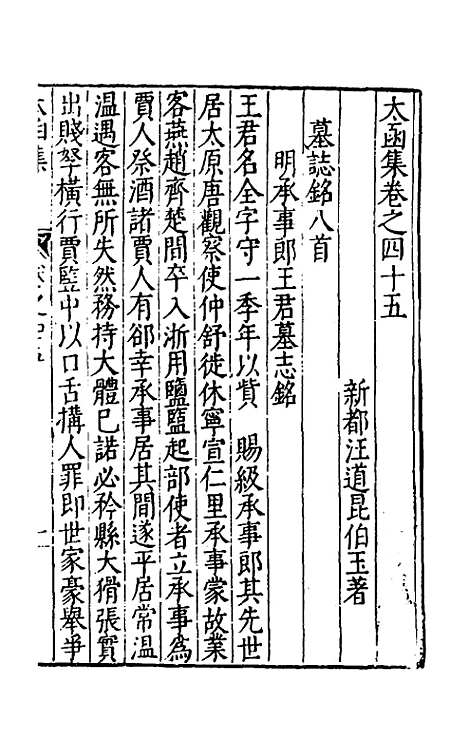 太函集卷之四十五
新都汪道昆伯玉著
墓誌銘八首
明承事郎王君墓志銘
王君名全字守一季年以貲　賜級承事郎其先世
居太原唐觀察使仲舒徙休寧宣仁里承事蒙故業
客燕趙齊楚間卒入浙用鹽鹽起部使者立承事為
賈人祭酒諸賈人有郤幸承事居其間遂平居常溫
溫遇客無所失然務持大體已諾必矜縣大猾張實
出賤孥橫行賈監中以口舌搆人罪即世家豪舉爭
太函集